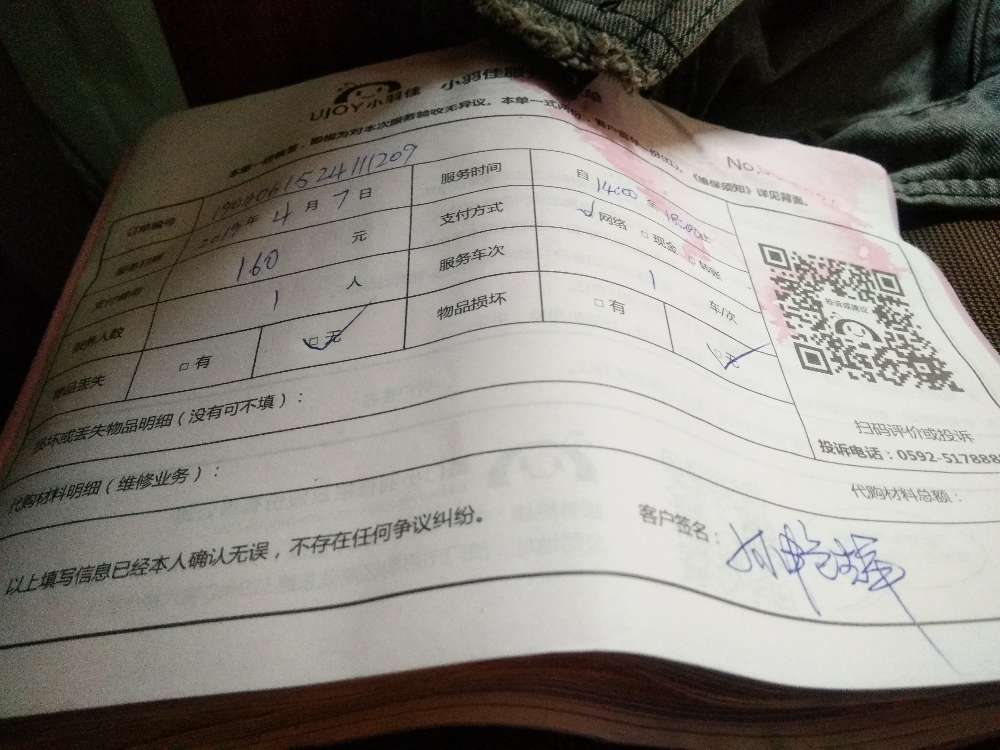 UJOY小羽佳 小羽佳服 单
对本次服务验收无异议。本单一式 详见背面。
No.
订单编号 190406152411209 服务时间 自 14:00 至
2019年 4 月 7 日 支付方式 网络 □ 现金 □ 转账
160 元 服务车次 1 车/次
服务人数 1 人 物品损坏 □ 有 □ 无
物品丢失 □ 有 □ 无
投诉或建议
扫码评价或投诉
投诉电话：0592-517888
损坏或丢失物品明细（没有可不填）：
代购材料明细（维修业务）： 代购材料总额：
以上填写信息已经本人确认无误，不存在任何争议纠纷。 客户签名：